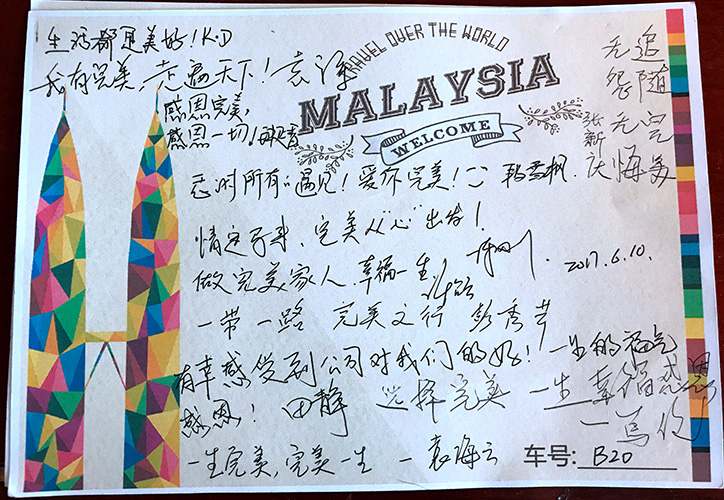 生活都是美好！K.D
TRAVEL OVER THE WORLD
MALAYSIA
WELCOME
我有完美,走遍天下！
感恩完美,
感恩一切！
追随完美
无怨无悔
张新庆
感恩所有的遇见！爱你完美！
情定马来、完美从"心"出发！
2017.6.10.
做完美家人.幸福一生
一带一路 完美之行 彭秀芹
有幸感受到公司对我们的好！一生的福气
感恩！田静
选择完美 一生幸福感恩
一生完美,完美一生 — 袁海云
车号: B20